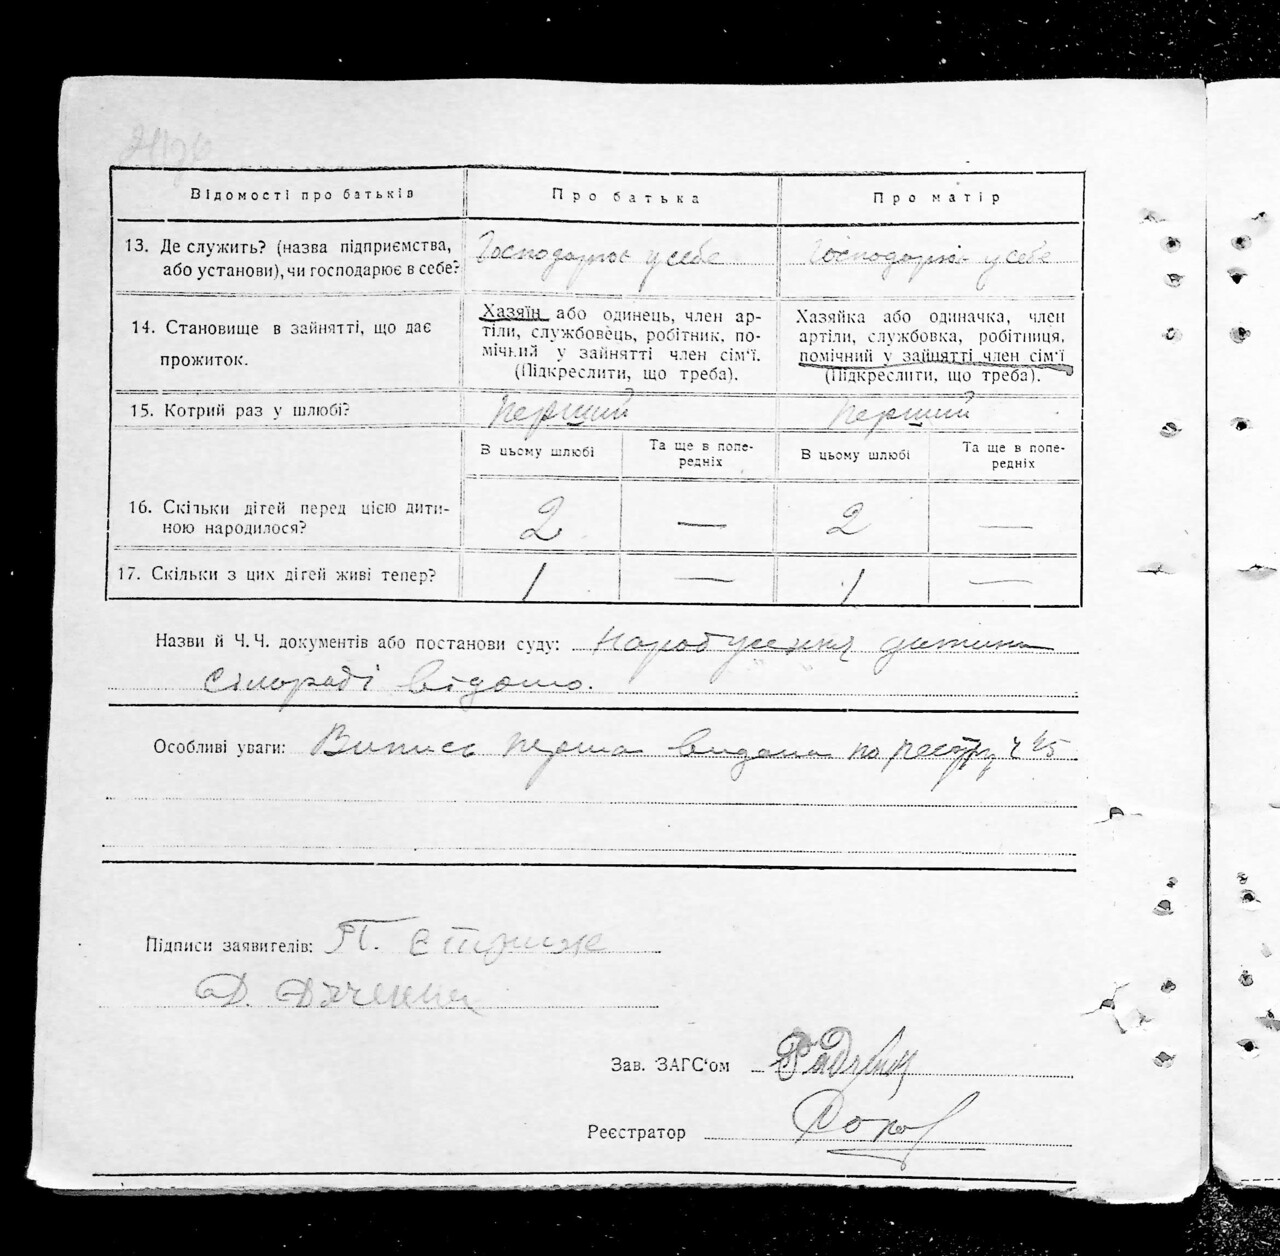 Відомості про батьків
Про батька
Про матір
13. Де служить? (назва підприємства, або установи), чи господарює в себе?
Господарює у себе
Господарює у себе
14. Становище в зайнятті, що дає прожиток.
Хазяїн або одинець, член ар-
тіли, службовець, робітник, по-
мічний у зайнятті член сім'ї.
(Підкреслити, що треба).
Хазяйка або одиначка, член
артіли, службовка, робітниця,
помічний у зайнятті член сім'ї
(Підкреслити, що треба).
15. Котрий раз у шлюбі?
Перший
Перший
В цьому шлюбі
Та ще в попе-
редніх
В цьому шлюбі
Та ще в попе-
редніх
16. Скільки дітей перед цією дити-
ною народилося?
2
—
2
—
17. Скільки з цих дітей живі тепер?
1
—
1
—
Назви й Ч. Ч. документів або постанови суду: дитини
сільраді відомо.
Особливі уваги: Випись перша видана по реєстру ч
Підписи заявителів: П.
Д.
Зав. ЗАГС'ом
Реєстратор